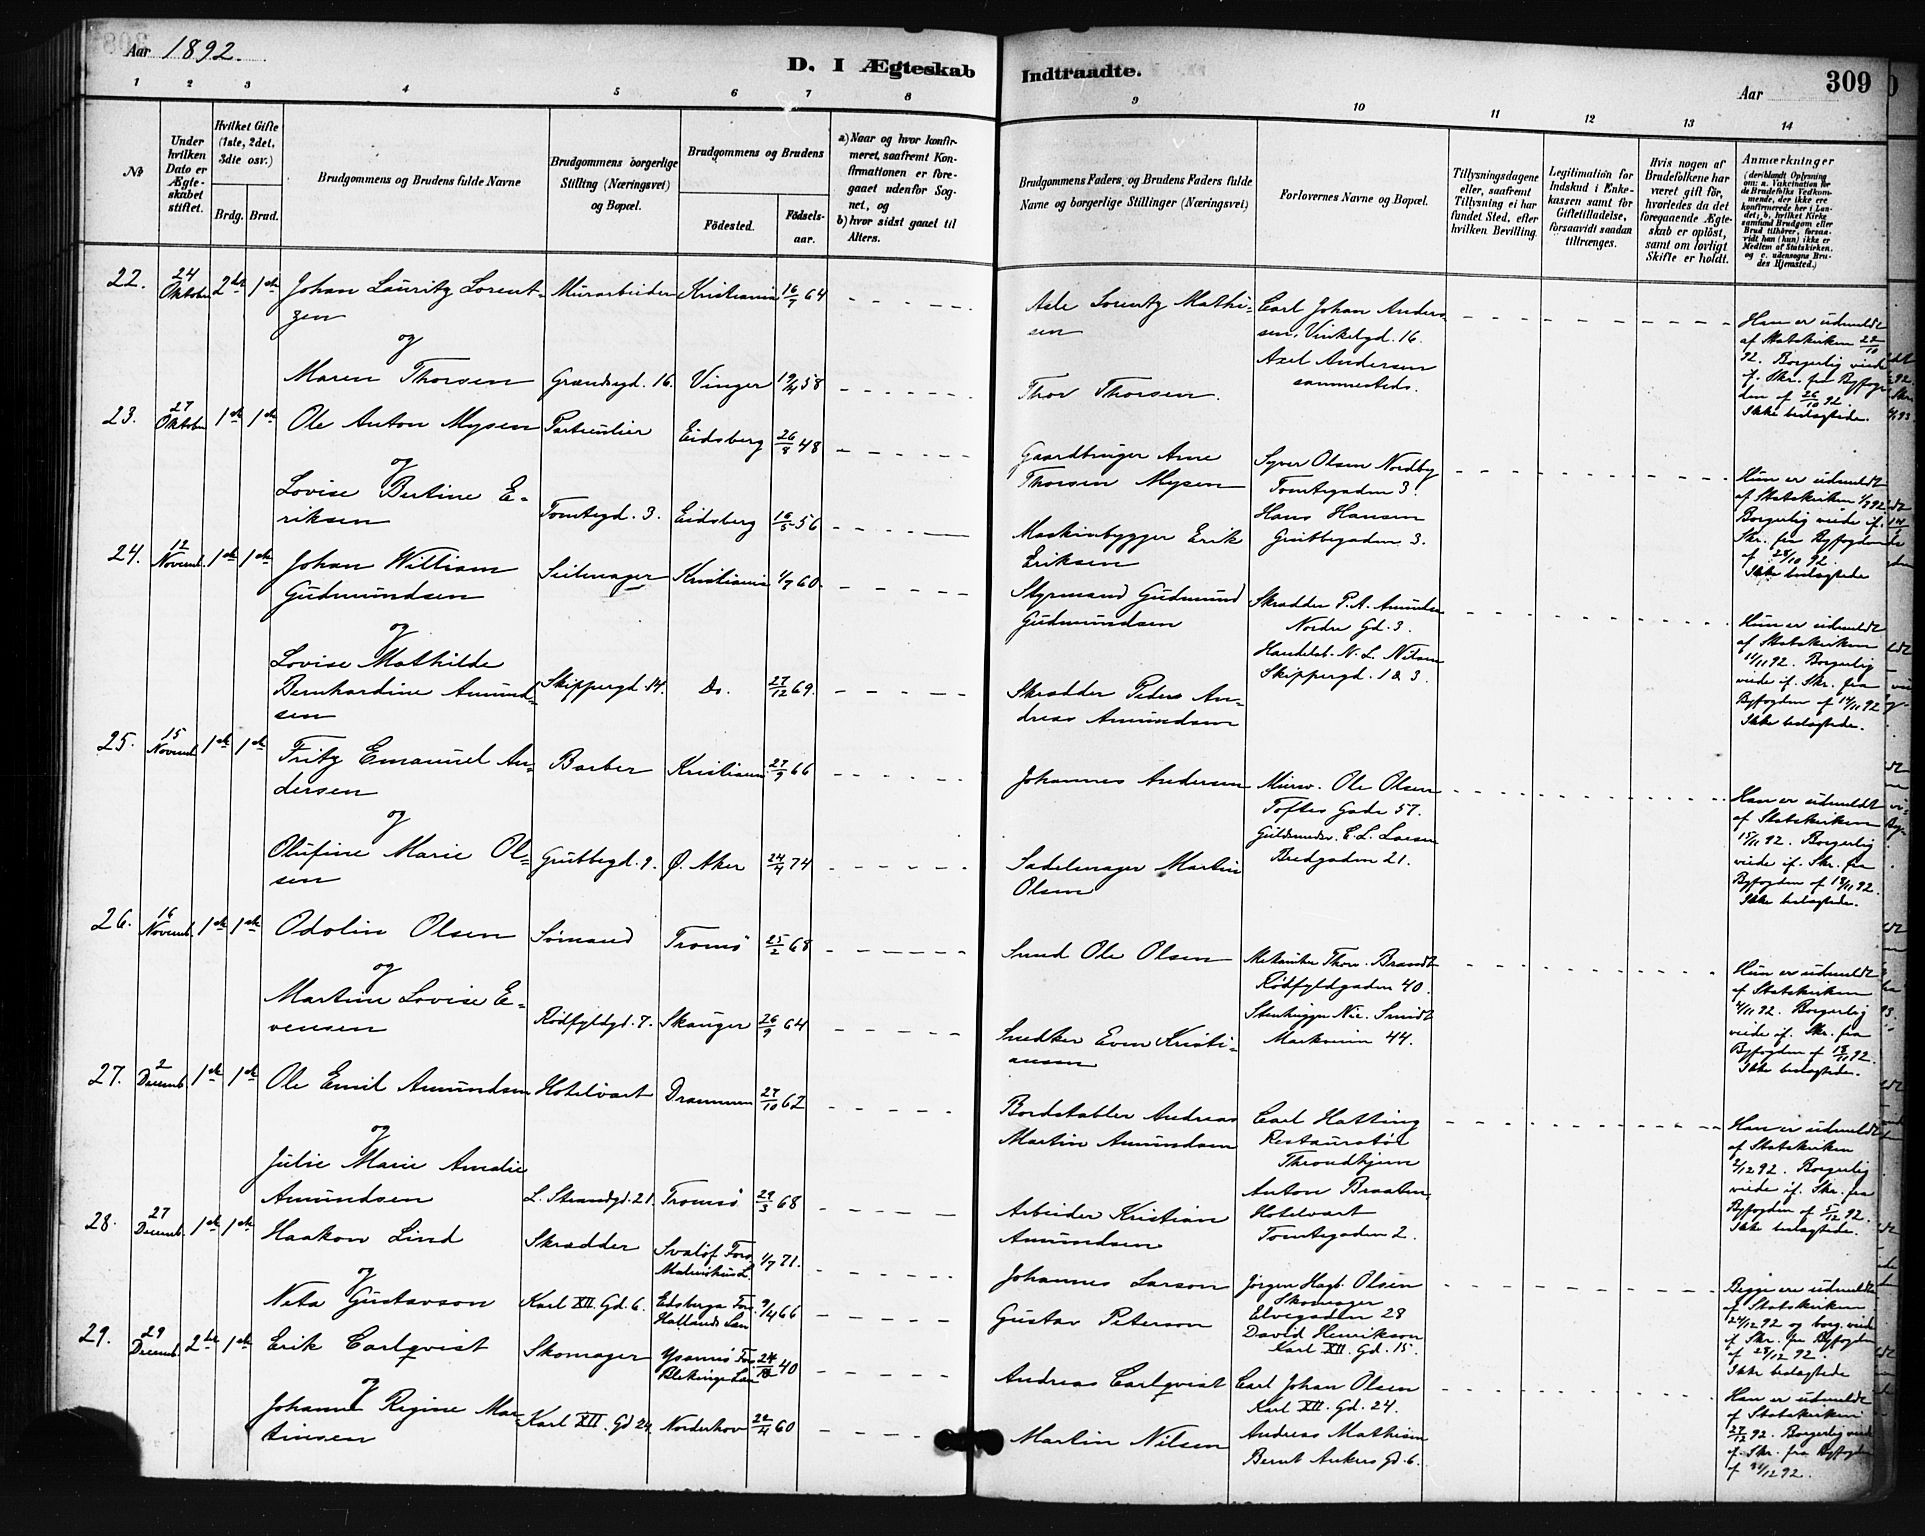 Aar 1892.
D. I Ægteskab Indtraadte.
Aar 309
1 2 3 4 5 6 7 8 9 10 11 12 13 14
No
Under hvilken Dato er Ægteskabet stiftet.
Hvilket Gifte (1ste, 2det, 3die osv.)
Brdg. Brud.
Brudgommens og Brudens fulde Navne
Brudgommens borgerlige Stilling (Næringsvei) og Bopæl.
Brudgommens og Brudens
Fødested. Fødselsaar.
a) Naar og hvor konfirmeret, saafremt Konfirmationen er foregaaet udenfor Sognet, og
b) hvor sidst gaaet til Alters.
Brudgommens Faders, og Brudens Faders fulde Navne og borgerlige Stillinger (Næringsvei)
Forlovernes Navne og Bopæl.
Tillysningsdagene eller, saafremt Tillysning ei har fundet Sted, efter hvilken Bevilling.
Legitimation for Indskud i Enkekassen samt for Giftetilladelse, forsaavidt saadan tiltrænges.
Hvis nogen af Brudefolkene har været gift før, hvorledes da det foregaaende Ægteskab er opløst, samt om lovligt Skifte er holdt.
Anmærkninger
(deriblandt Oplysning om: a. Vakcination for de Brudefolks Vedkommende, der ikke ere konfirmerede her i Landet; b. hvilket Kirkesamfund Brudgom eller Brud tilhører, forsaavidt han (hun) ikke er Medlem af Statskirken, og c. udensogns Brudes Hjemsted.)
22. 24 Oktober 2det 1ste Johan Lauritz Lorentzen Murarbeider Kristiania 16/7 64
og
Maren Thorsen Grændsegd. 16. Vinger 19/4 58
Asle Lorentz Mathisen
Thor Thorsen.
Carl Johan Andersen, Vinkelgd. 16.
Axel Andersen sammesteds.
Han er udmeldt af Statskirken 22/10 92. Borgerlig viede if. Skr. fra Byfogden af 26/10 92. Ikke beslægtede.
23. 27 Oktober 1ste 1ste Ole Anton Mysen Particulier Eidsberg 26/8 48
og
Lovise Bertine Eriksen Tomtegd. 3. Eidsberg 16/5 56
Gaardbruger Arne Thorsen Mysen
Maskinbygger Erik Eriksen
Syver Olsen Nordby Tomtegaden 3.
Hans Hansen Grubbegaden 3.
Hun er udmeldt af Statskirken 1/9 92. Borgerlig viede if. Skr. fra Byfogden af 28/10 92. Ikke beslægtede
24. 12 Novemb. 1ste 1ste Johan William Gudmundsen Seilmager Kristiania 1/7 60.
og
Lovise Mathilde Bernhardine Amundsen Skippergd. 14. Do. 27/12 69.
Styrmand Gudmund Gudmundsen
Skrædder Peder Andreas Amundsen
Skrædder P. A. Amundsen Nordre Gd. 3.
Handelsb. N. L. Nilsen Skippergd. 1 & 3.
Hun er udmeldt af Statskirken 11/11 92. Borgerlig viede if. Skr. fra Byfogden af 14/11 92 Ikke beslægtede.
25. 15 Novemb. 1ste 1ste Fritz Emanuel Andersen Barber Kristiania 27/9 66
og
Olufine Marie Olsen Grubbegd. 9. Ø. Aker 24/4 74
Johannes Andersen
Sadelmager Martin Olsen
Murer. Ole Olsen Toftes Gade 57.
Guldsmedsv. C. L. Larsen Bredgaden 21.
Han er udmeldt af Statskirken 15/11 92. Borgerlig viede if. Skr. fra Byfogden af 18/11 92. Ikke beslægtede.
26. 16 Novemb. 1ste 1ste Odolin Olsen Sømand Tromsø 25/2 68
og
Martine Lovise Evensen Rødfyldgd. 7. Skauger 26/9 64
Smed Ole Olsen
Snedker Even Kristiansen
Mekaniker Thorv. Brandt Rødfyldgaden 40.
Stenhugger Nic. Smidt Markveien 44.
Hun er udmeldt af Statskirken 4/11 92. Borgerlig viede if. Skr. fra Byfogden af 18/11 92. Ikke beslægtede.
27. 2 Decemb. 1ste 1ste Ole Emil Amundsen Hotelvært Drammen 27/10 62
og
Julie Marie Amalie Amundsen L. Strandgd. 21. Tromsø 29/3 68
Bordstabler Andreas Martin Amundsen
Arbeider Kristian Amundsen
Carl Hatting Restauratør Throndhjem
Anton Braaten Hotelvært Tomtegaden 2.
Han er udmeldt af Statskirken 2/12 92. Borgerlig viede if. Skr. fra Byfogden af 5/12 92. Ikke beslægtede.
28. 27 Decemb. 1ste 1ste Haakon Lind Skrædder Svaløf Fors. Malmøhus L. 1/7 71.
og
Neta Gustavson Karl XII. Gd. 6. Edsberga For. Hallands Len 9/4 66
Johannes Larson
Gustav Peterson
Jörgen Hagb. Olsen Skomager Elvegaden 28
David Henrikson Karl XII. Gd. 15.
Begge ere udmeldte af Statskirken 24/12 92 og borg. viede if. Skr. fra Byfogden af 28/12 92. Ikke beslægtede
29. 29 Decemb. 2det 1ste Erik Carlqvist Skomager Ysannes For. Blekinge Len 24/12 40
og
Johanne Regine Martinsen Karl XII. Gd 24. Norderhov 22/4 60
Andreas Carlqvist
Martin Nilsen
Carl Johan Olsen Karl XII. Gd. 24.
Andreas Mathisen Bernt Ankers Gd. 6.
Han er udmeldt af Statskirken 27/12 92. Borgerlig viede if. Skr. fra Byfogden af 31/12 92.